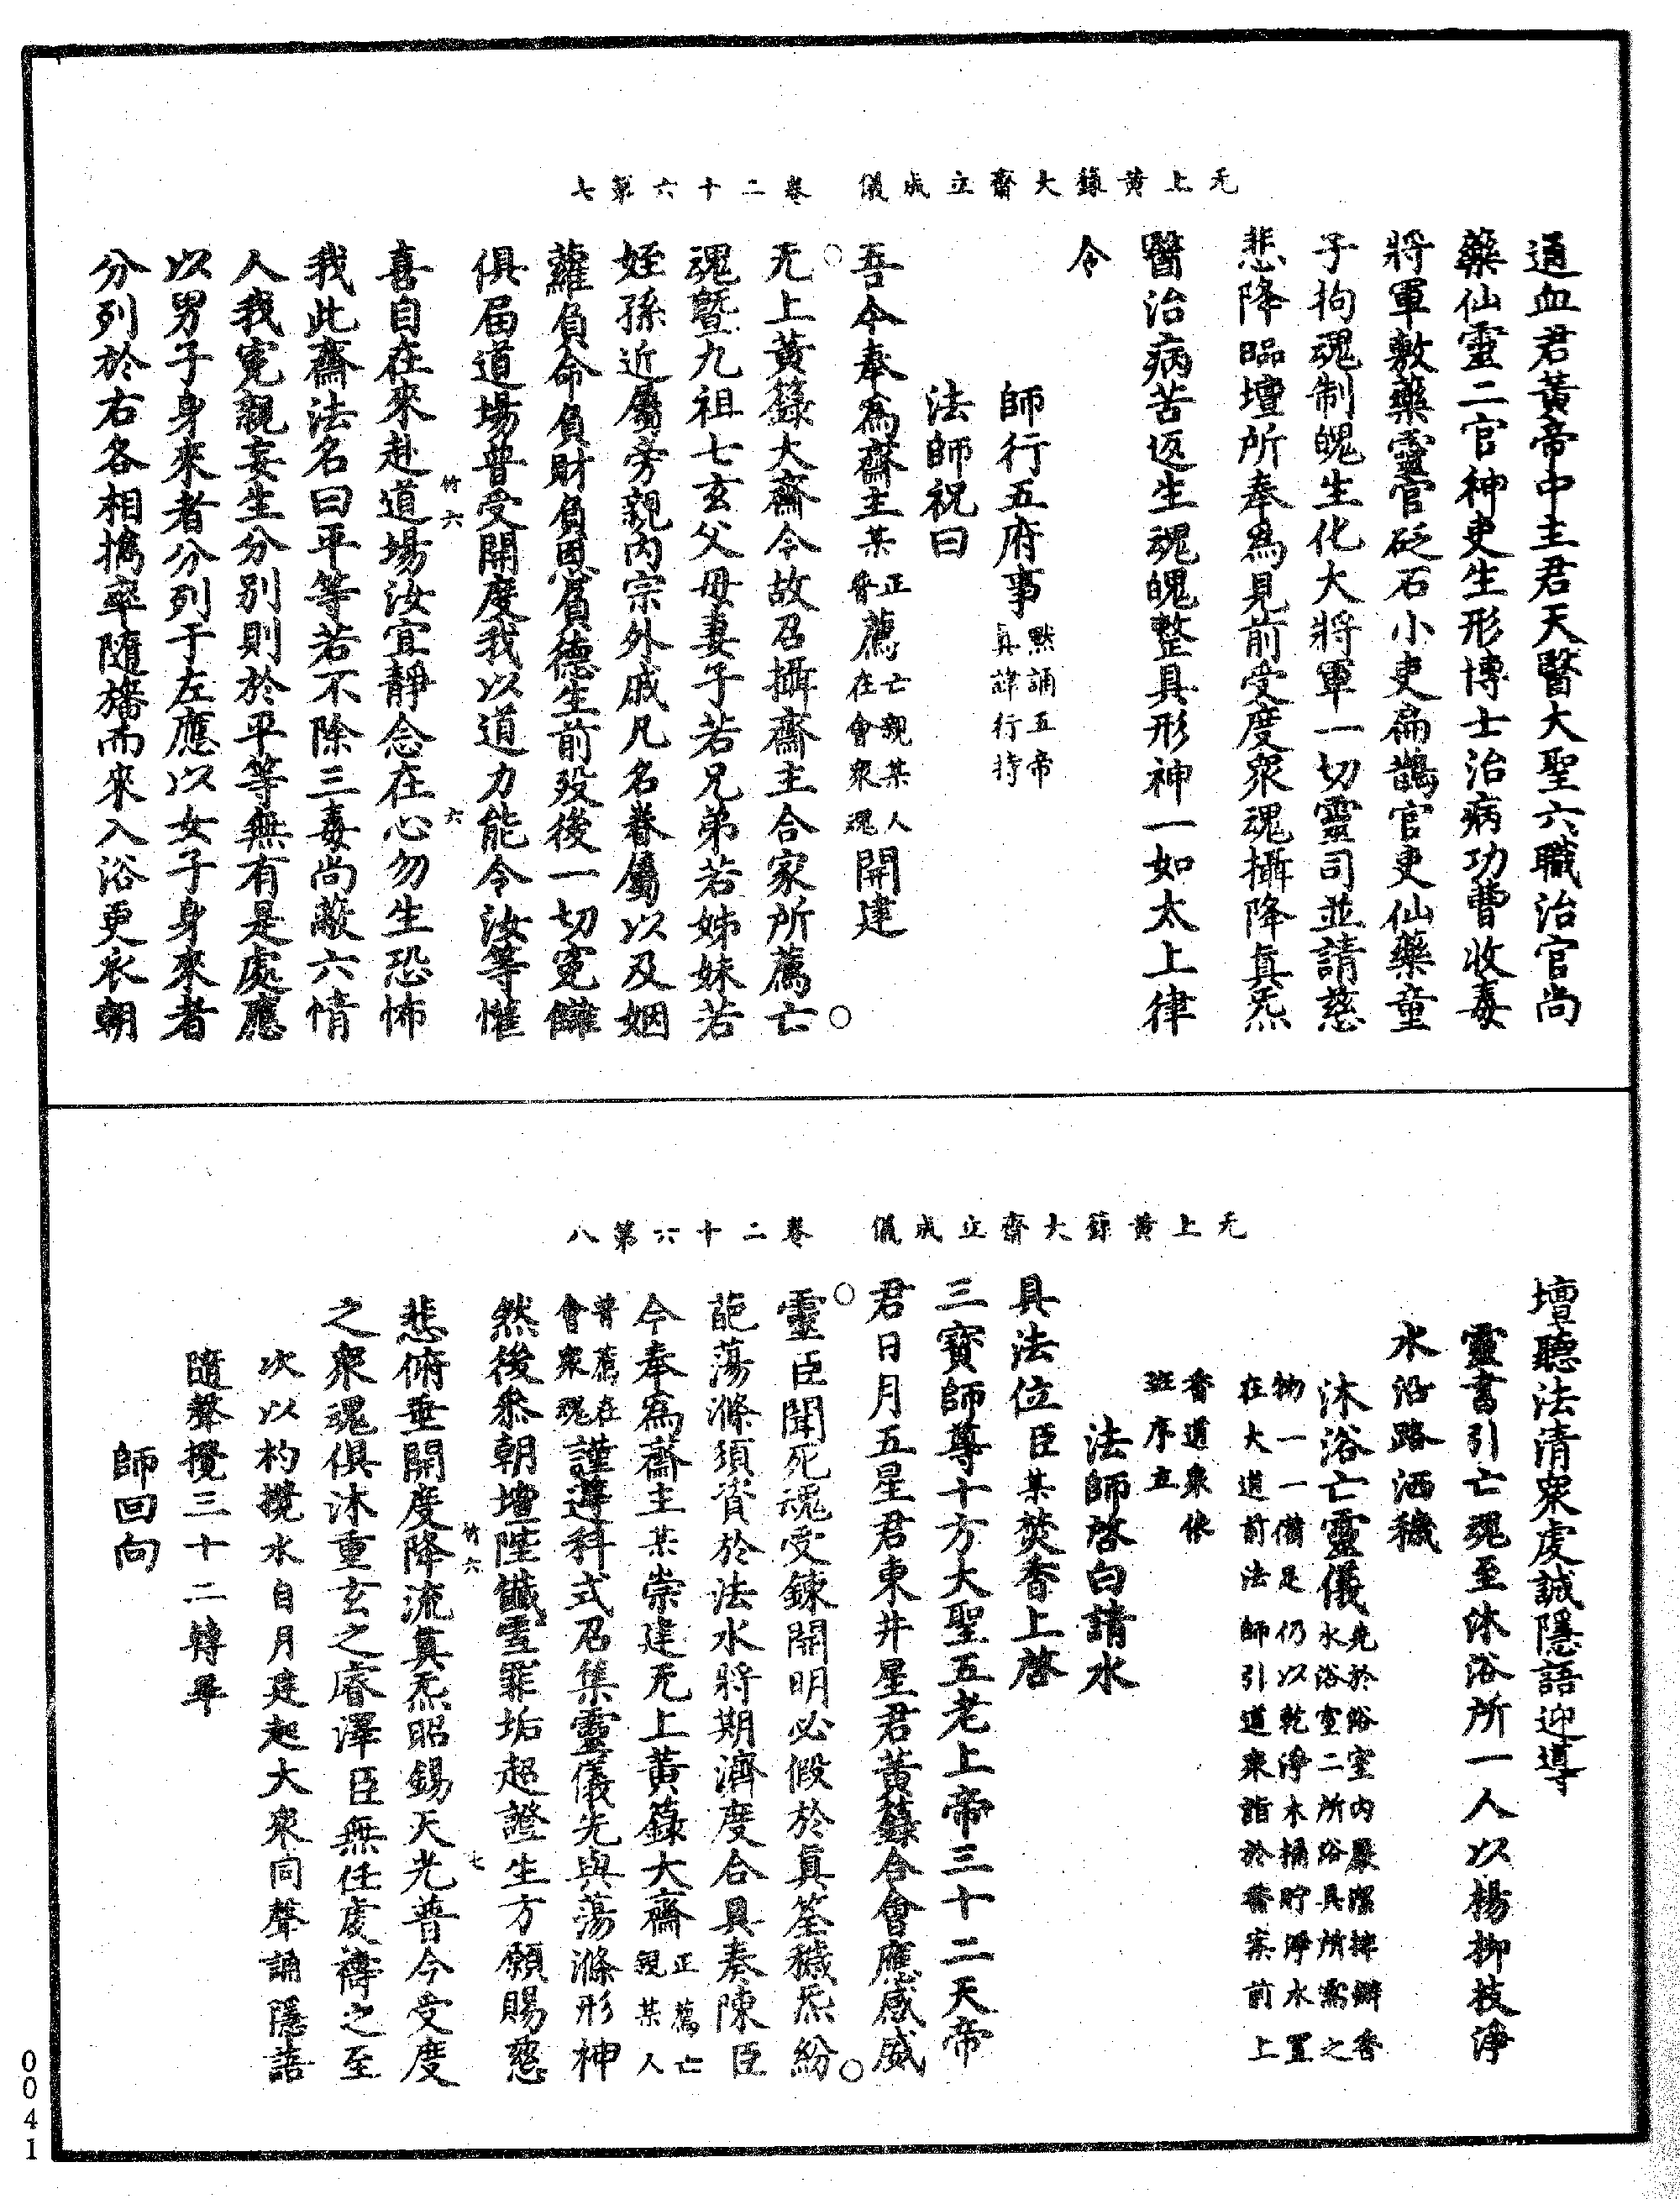 无上黃籙大齋立成儀　卷二十六第七
通血君黃帝中主君天醫大聖六職治官尚
藥仙靈二官神吏生形博士治病功曹收毒
將軍敷藥靈官砭石小吏扁鵲官吏仙藥童
子拘魂制魄生化大將軍一切靈司並請慈
悲降臨壇所奉為見前受度眾魂攝降真炁
醫治病苦返生魂魄整具形神一如太上律
令
師行五府事默誦五帝真諱行持
法師祝曰
吾今奉為齋主某正薦亡親某人普在會眾魂開建
无上黃籙大齋今故召攝齋主合家所薦亡
魂暨九祖七玄父母妻子若兄弟若姊妹若
姪孫近屬旁親內宗外戚凡名眷屬以及姻
蘿負命負財負恩負德生前歿後一切寃讎
俱届道場普受開度我以道力能令汝等懽
喜自在來赴道場汝宜靜念在心勿生恐怖
竹六　六
我此齋法名曰平等若不除三毒尚蔽六情
人我寃親妄生分別則於平等無有是處應
以男子身來者分列于左應以女子身來者
分列於右各相擕率隨旛而來入浴更衣朝
无上黃籙大齋立成儀　卷二十六第八
壇聽法清眾虔誠隱語迎導
靈書引亡魂至沐浴所一人以楊柳枝淨
水沿路洒穢
沐浴亡靈儀先於浴室內嚴潔排辦香水浴室二所浴具所需之
物一一備足仍以乾淨木桶貯淨水置
在大道前法師引道眾詣於香案前上
香道眾依班序立
法師啓白請水
具法位臣某焚香上啓
三寶師尊十方大聖五老上帝三十二天帝
君日月五星君東井星君黃籙合會應感威
靈臣聞死魂受鍊開明必假於真筌穢炁紛
葩蕩滌須資於法水將期濟度合具奏陳臣
今奉為齋主某崇建无上黃籙大齋正薦亡親某人
普薦在會眾魂謹遵科式召集靈儀先與蕩滌形神
然後叅朝壇陛懺雪罪垢超證生方願賜慈
竹六　七
悲俯垂開度降流真炁昭錫天光普今受度
之眾魂俱沐重玄之睿澤臣無任虔禱之至
次以杓攪水自月建起大眾同聲誦隱語
隨聲攪三十二轉畢
師回向
0041